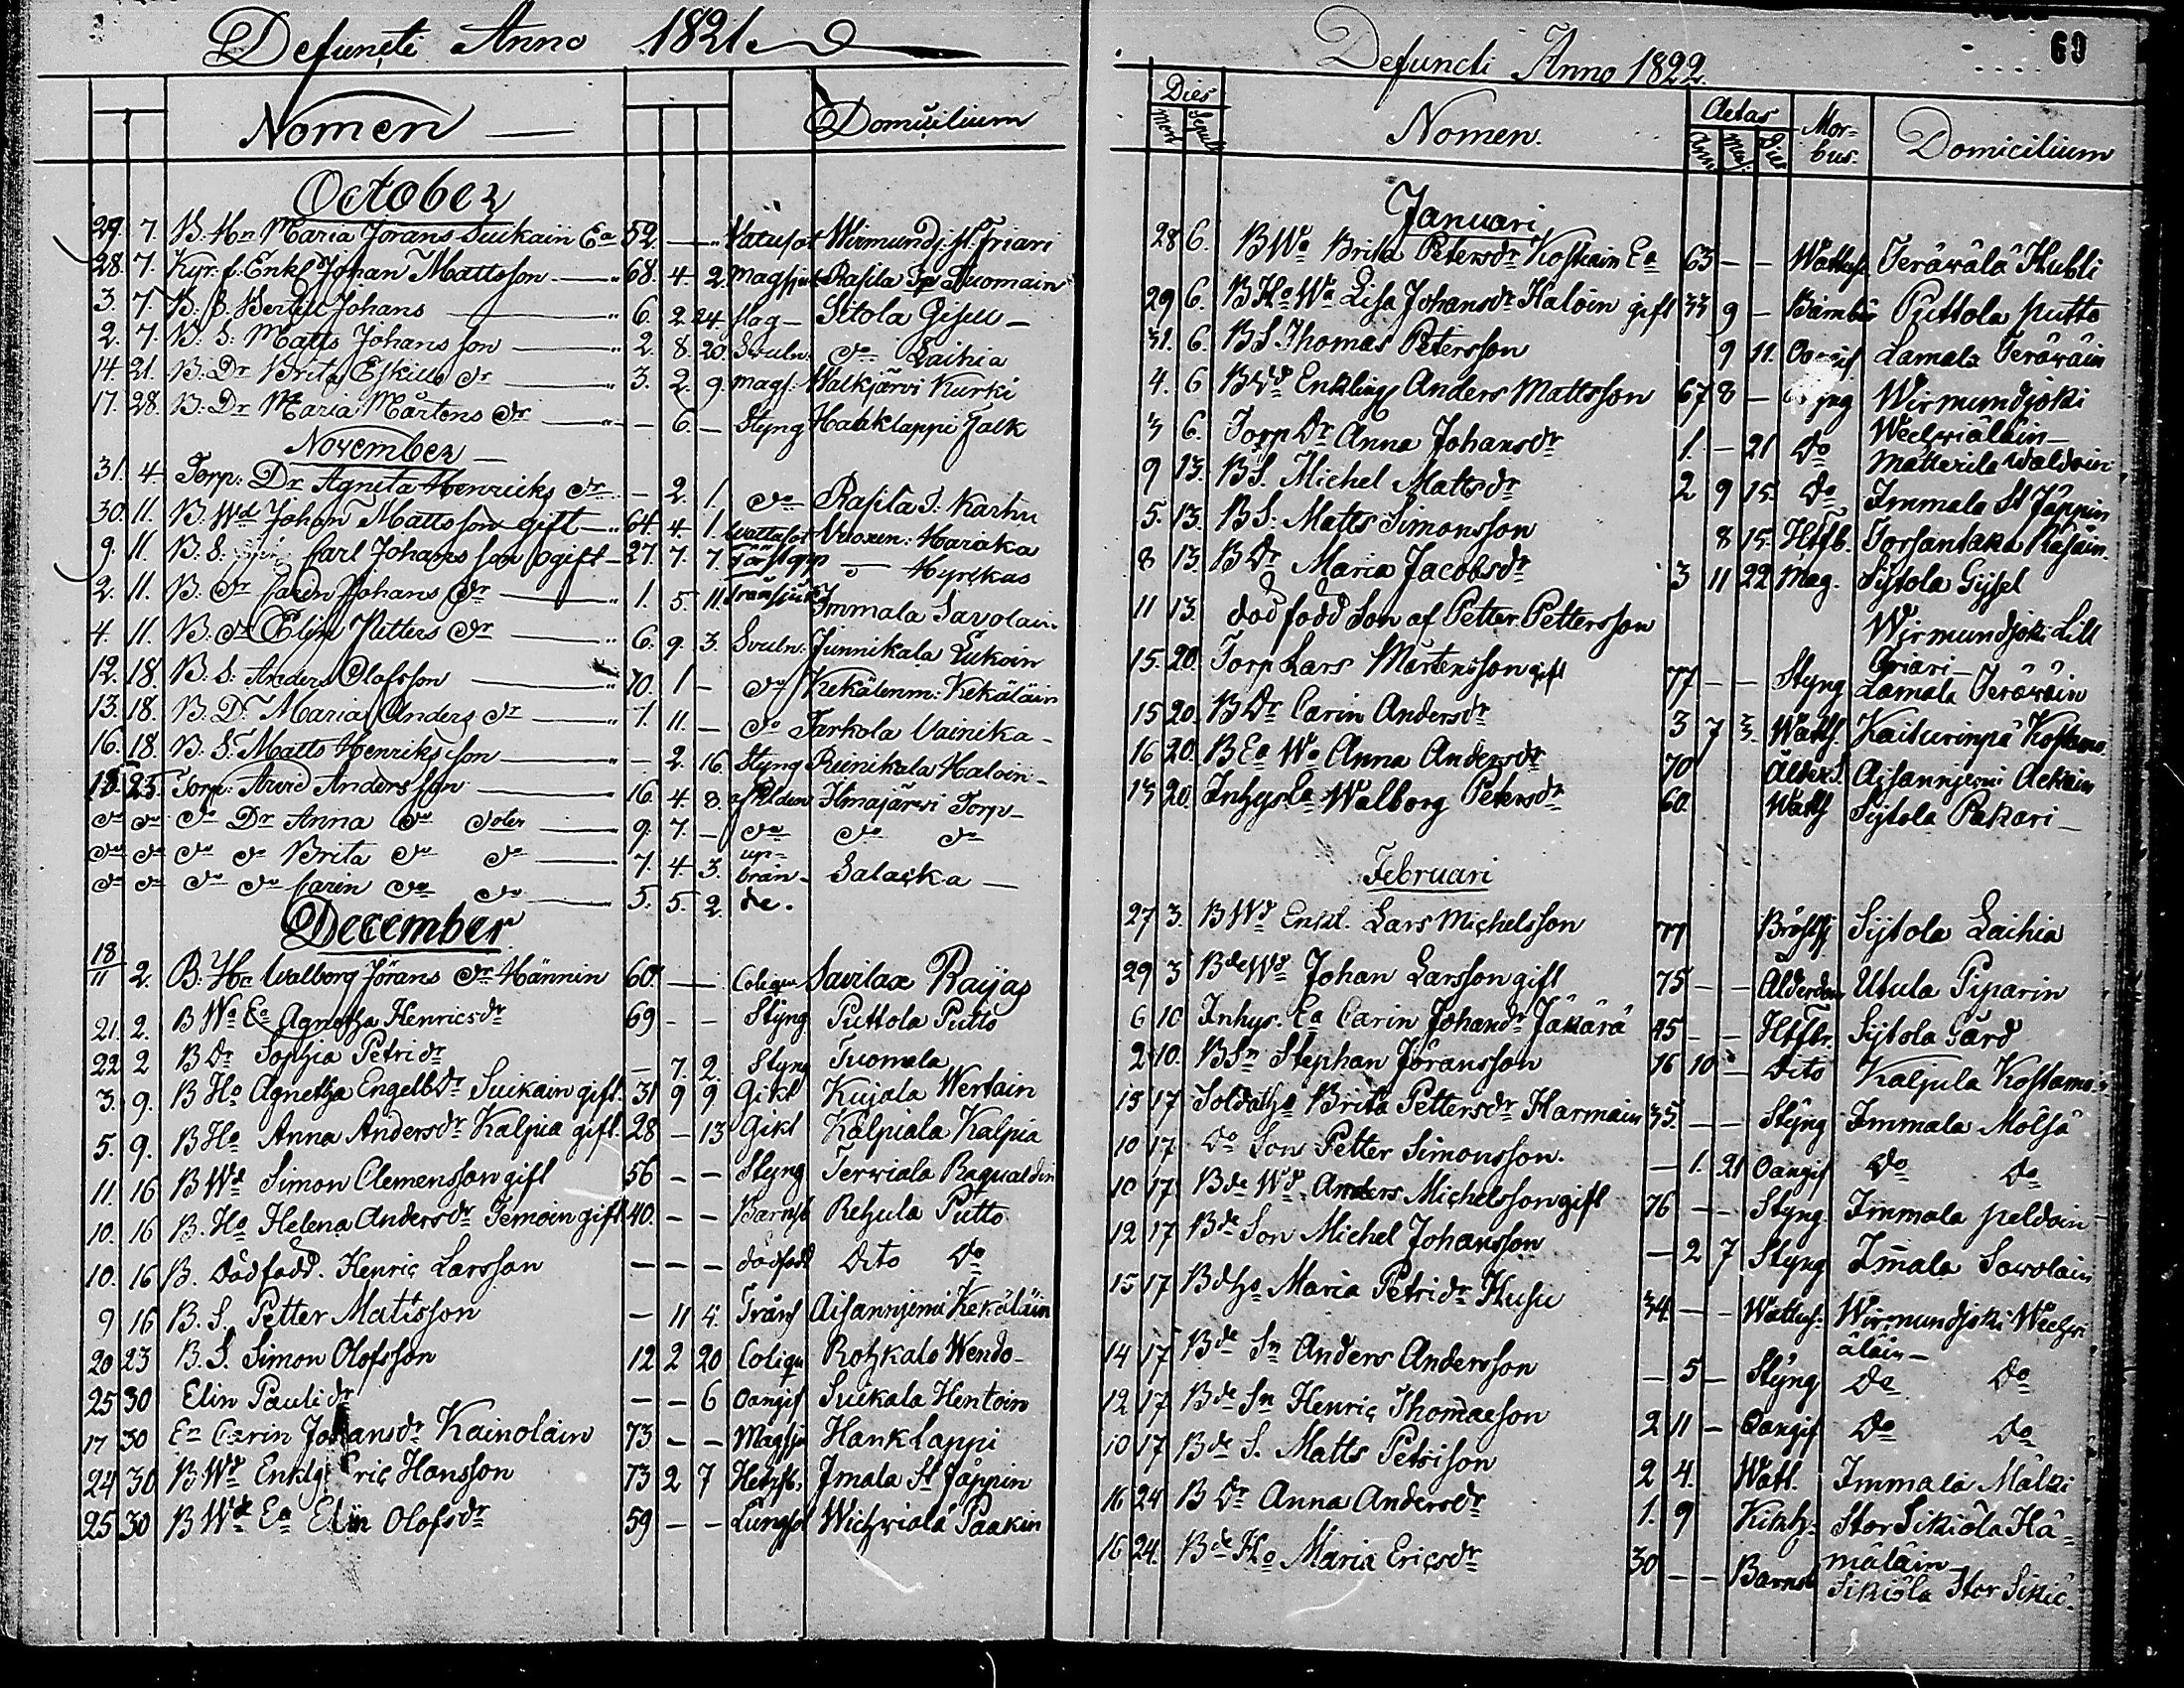 Defuncti Anno 1821
Nomen Domicilium
October
29. 7. B. Hn Maria Jörans Suikain Ea 52. — Vatusot Wirmundj. St. Friari
28. 7. Kyr. f. Enkl Johan Mattsson — 68. 4. 2. Magsjuk Rasila Tuomain
3. 7. B. S. Bertill Johans — 6. 2. 24 slag — Sitola Gisell —
2. 7. B. S. Matts Johansson — 2. 8. 20. Svuln. do Laihia
14. 21. B. Dr Brita Eskills dr — 3. 2. 9. Mags. Walkjärvi Kurki
17. 28. B. Dr Maria Mårtens dr — — 6. — Styng Hanklappi Falk
November
31. 4 Torp. Dr Agneta Henricks dr — 2. 1. do Rasila P. Karhu
30. 11. B. Wd Johan Mattsson gift — 64. 4. 1. Wattusot Vroxen: Haraka
9. 11. B. S. Carl Johansson ogift — 27. 7. 7. — Hyrckas
2. 11. B. Dr Caren Johans dr — 1. 5. 11 Transjuk Immala Savolain
4. 11. B. Dr Elin Petters dr — 6. 9. 3. Svuln. Junnikala Lukoin
12. 18. B. S. Anders Olofsson — 10. 1 — do Kekälenm: Kekäläin
13. 18. B. Dr Maria Anders dr — 1. 11. — do Tarkola Vainika —
16. 18. B. S. Matts Henriksson — — 2. 16. Styng Reinikala Haloin —
18. 25. Torp. Arvid Andersson — 16. 4. 8. af Elden Ilmajärvi Torp —
do do do Dr Anna do doter — 9. 7. — do do do
do do do do Brita do do — 7. 4. 3. up=
brän- Salacka —
do do do do Carin do do — 5. 5. 2. de.
December
18/11 2. B. Ha Walborg Jörans dr Hännin 60. — — Colique Savilax Raijas
21. 2. B Wa Ea Agnetha Henricsdr 69 — — Styng Puttola Putto
22 2 B Dr Sophia Petridr — 7. 2. Styng Tuomala
3. 9. B Ho Agnetha Engelbdr Suikain gift. 31 9 9 Gikt Kujala Wertain
5. 9. B Ho Anna Andersdr Kalpia gift. 28 — 13 Gikt Kälpiala Kalpia
11. 16 B Wd Simon Clemensson gift 56 — — Styng Terwiala Raqualdin
10. 16 B. Ho Helena Andersdr Temoin gift 40. — — Barnsb Rehula Putto
10. 16 B. dödfödd. Henric Larsson — — — dödfödd Dito Do
9 16 B. S. Petter Matisson — 11 4. Trånf Aisannjemi Kekäläin
20 23 B. S. Simon Olofsson 12 2 20 Colique Rohkala Wendo —
25 30 Elin Paulidr — — 6 Oangif Suikala Hentoin
17 30 Ea Carin Johansdr Kainolain 73 — — Magsju Hanklappi
24 30 B Wd Enklg Eric Hansson 73 2 7 Imala St Jäppin
25 30 B Wd Ea Elin Olofsdr 59 — — Lungsot Wichwiala Paakin
69
Defuncti Anno 1822.
Dies Nomen. Aetas Mor=
bus. Domicilium
Mort Sepult Ann Men Dies
Januari
28 6. B Wa Brita Petersdr Koskain Ea 63 — — Wattusot Teräwälä Hubli
29 6. B Ho Wa Lisa Johansdr Haloin gift 33 9 — Barnbör Puttola putto
31. 6. B S Thomas Petersson 9 11. Lamala Teräwäin
4. 6 B Wd Enkling Anders Mattsson 67 8 — Wirmundjoki
Wechwiäläin —
3 6. Torp Dr Anna Johansdr 1. — 21 Do Matterila Waldoin
9 13. B S. Michel Mattsdr 2 9 15. Do Immala St Jäppin
5. 13. B S. Matts Simonsson 8 15. Htfb. Torsantaka Rasäin
8 13. B Dr Maria Jacobsdr 3 11 22 Mag. Sijtola Gijsel
11 13 död född Son af Petter Pettersson Wirmundjoki Lill
Friari —
15. 20. Torp Lars Mårtensson gift 77 — — Styng Lamala Teräwäin
15 20. B Dr Carin Andersdr 3 7 3. Watts Kaiturinpä Kostamo
16 20. B Ea Wa Anna Andersdr 70 Alderd. Aisannjemi Ackain
13 20. Inhys Ea Walborg Petersdr 60. Watts Sijtola Pakari —
Februari
27 3. B Wd Enkl. Lars Michelsson 77 Bröstsj Sijtola Laihia
29 3 Bde Wd Johan Larsson gift 75 — — Alderdom Utula Piparin
6 10 Inhys. Ea Carin Johandr Jäkärä 45 — — Htfbr. Sijtola Gård
2 10. B Sn Stephan Jöransson 16 10 — Dito Kaljula Kostamo
15 17 Soldatho Brita Pettersdr Harmain 35. — — Styng Immala Mölsä
10 17 Do Son Petter Simonsson. — 1. 21 Oangif Do Do
10 17. Bde Wd Anders Michelsson gift 76 — — Styng. Immala peldoin
12 17 Bde Son Michel Johansson — 2 7 Styng Imala Sawolain
15 17 Bdho Maria Petridr Husu 34. — — Wattus. Wirmundjoki Wechwi
äläin —
14 17 Bde Sn Anders Andersson — 5 — Styng Do Do
12 17. Bde Sn Henric Thomaeson 2 11 — Oangif Do Do
10 17 Bde S. Matts Petrison 2 4. Watt. Immala Mälki
16 24 B Dr Anna Andersdr 1. 9 Kikh. Stor Sikiöla Hä=
mäläin
16 24. Bde Ho Maria Ericsdr 30 — — Barnsb Sikiöla Stor Sikiö.